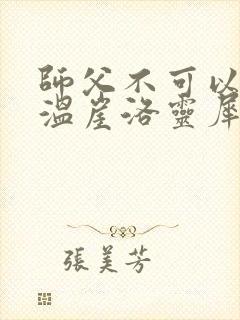 師父不可以
溫崖洛靈犀
張美芳